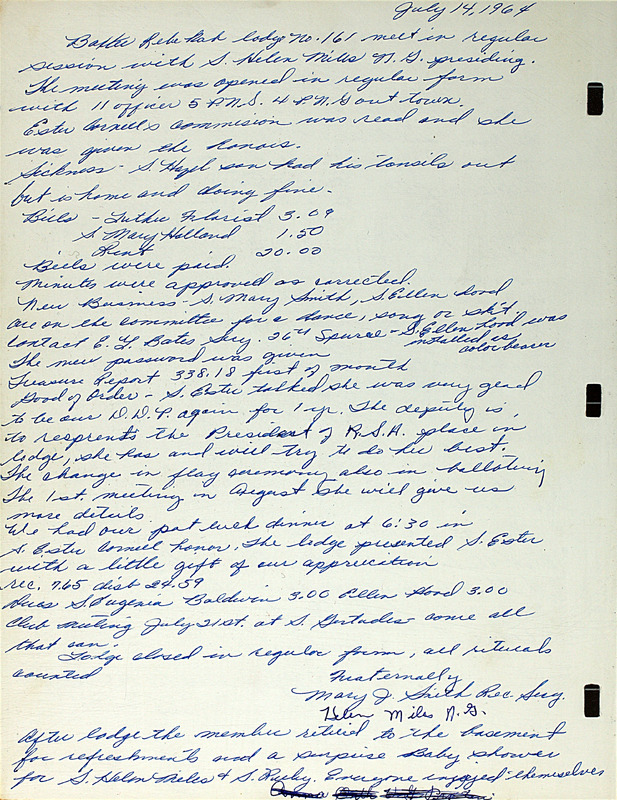 July 14, 1964
Baxter Rebekah lodge No. 161 meet in regular
session with S. Helen Miles N. G. presiding.
The meeting was opened in regular form
with 11 officer 5 P.N.G. 4 P.N.G out town.
Ester Cornell's commision was read and she
was given the honors.
Sickness - S. Hazel son had his tonsils out
but is home and doing fine.
Bills - Luther Florist 3.09
S. Mary Holland 1.50
Rent 20.00
Bills were paid.
Minutes were approved as corrected.
New Business - S. Mary Smith, S. Ellen Hood
are on the committee for a dance, song or skit.
contact E. G. Bates Secy. 26 - S. Ellen Hood was
installed as
color bearer
The new password was given
Treasure Report 338.18 first of month
Good of Order - S. Ester talked she was very glad
to be our D.D.P. again for 1 yr. The deputy is
to resprents the President of R.S.A. place in
lodge, she has and will try to do her best.
The change in flag ceremony also in balloting
The 1st. meeting in August she will give us
more details.
We had our pot luck dinner at 6:30 in
S. Ester Cornell honor. The lodge presented S. Ester
with a little gift of our appreciation
rec. 7.65 disb 24.59
Dues S. Eugenia Baldwin 3.00 Ellen Hood 3.00
Club meeting July 21st. at S. Gertudes come all
that can.
Lodge closed in regular form, all rituals
counted
Fraternally
Mary J. Smith Rec. Secy.
Helen Miles N. G.
After lodge the member retired to the basement
for refreshments and a surprise Baby shower
for S. Helen Miles & S. Ruby. Everyone injoyed themselves